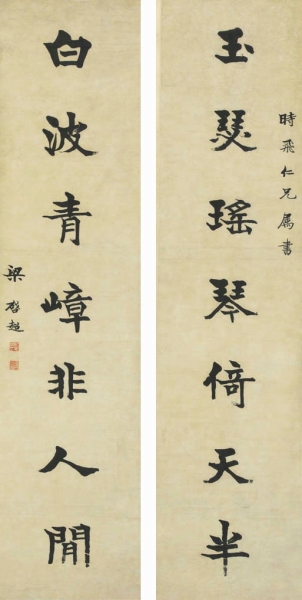 時飛仁兄屬書
玉瑟瑤琴倚天半
白波青嶂非人間
梁啓超